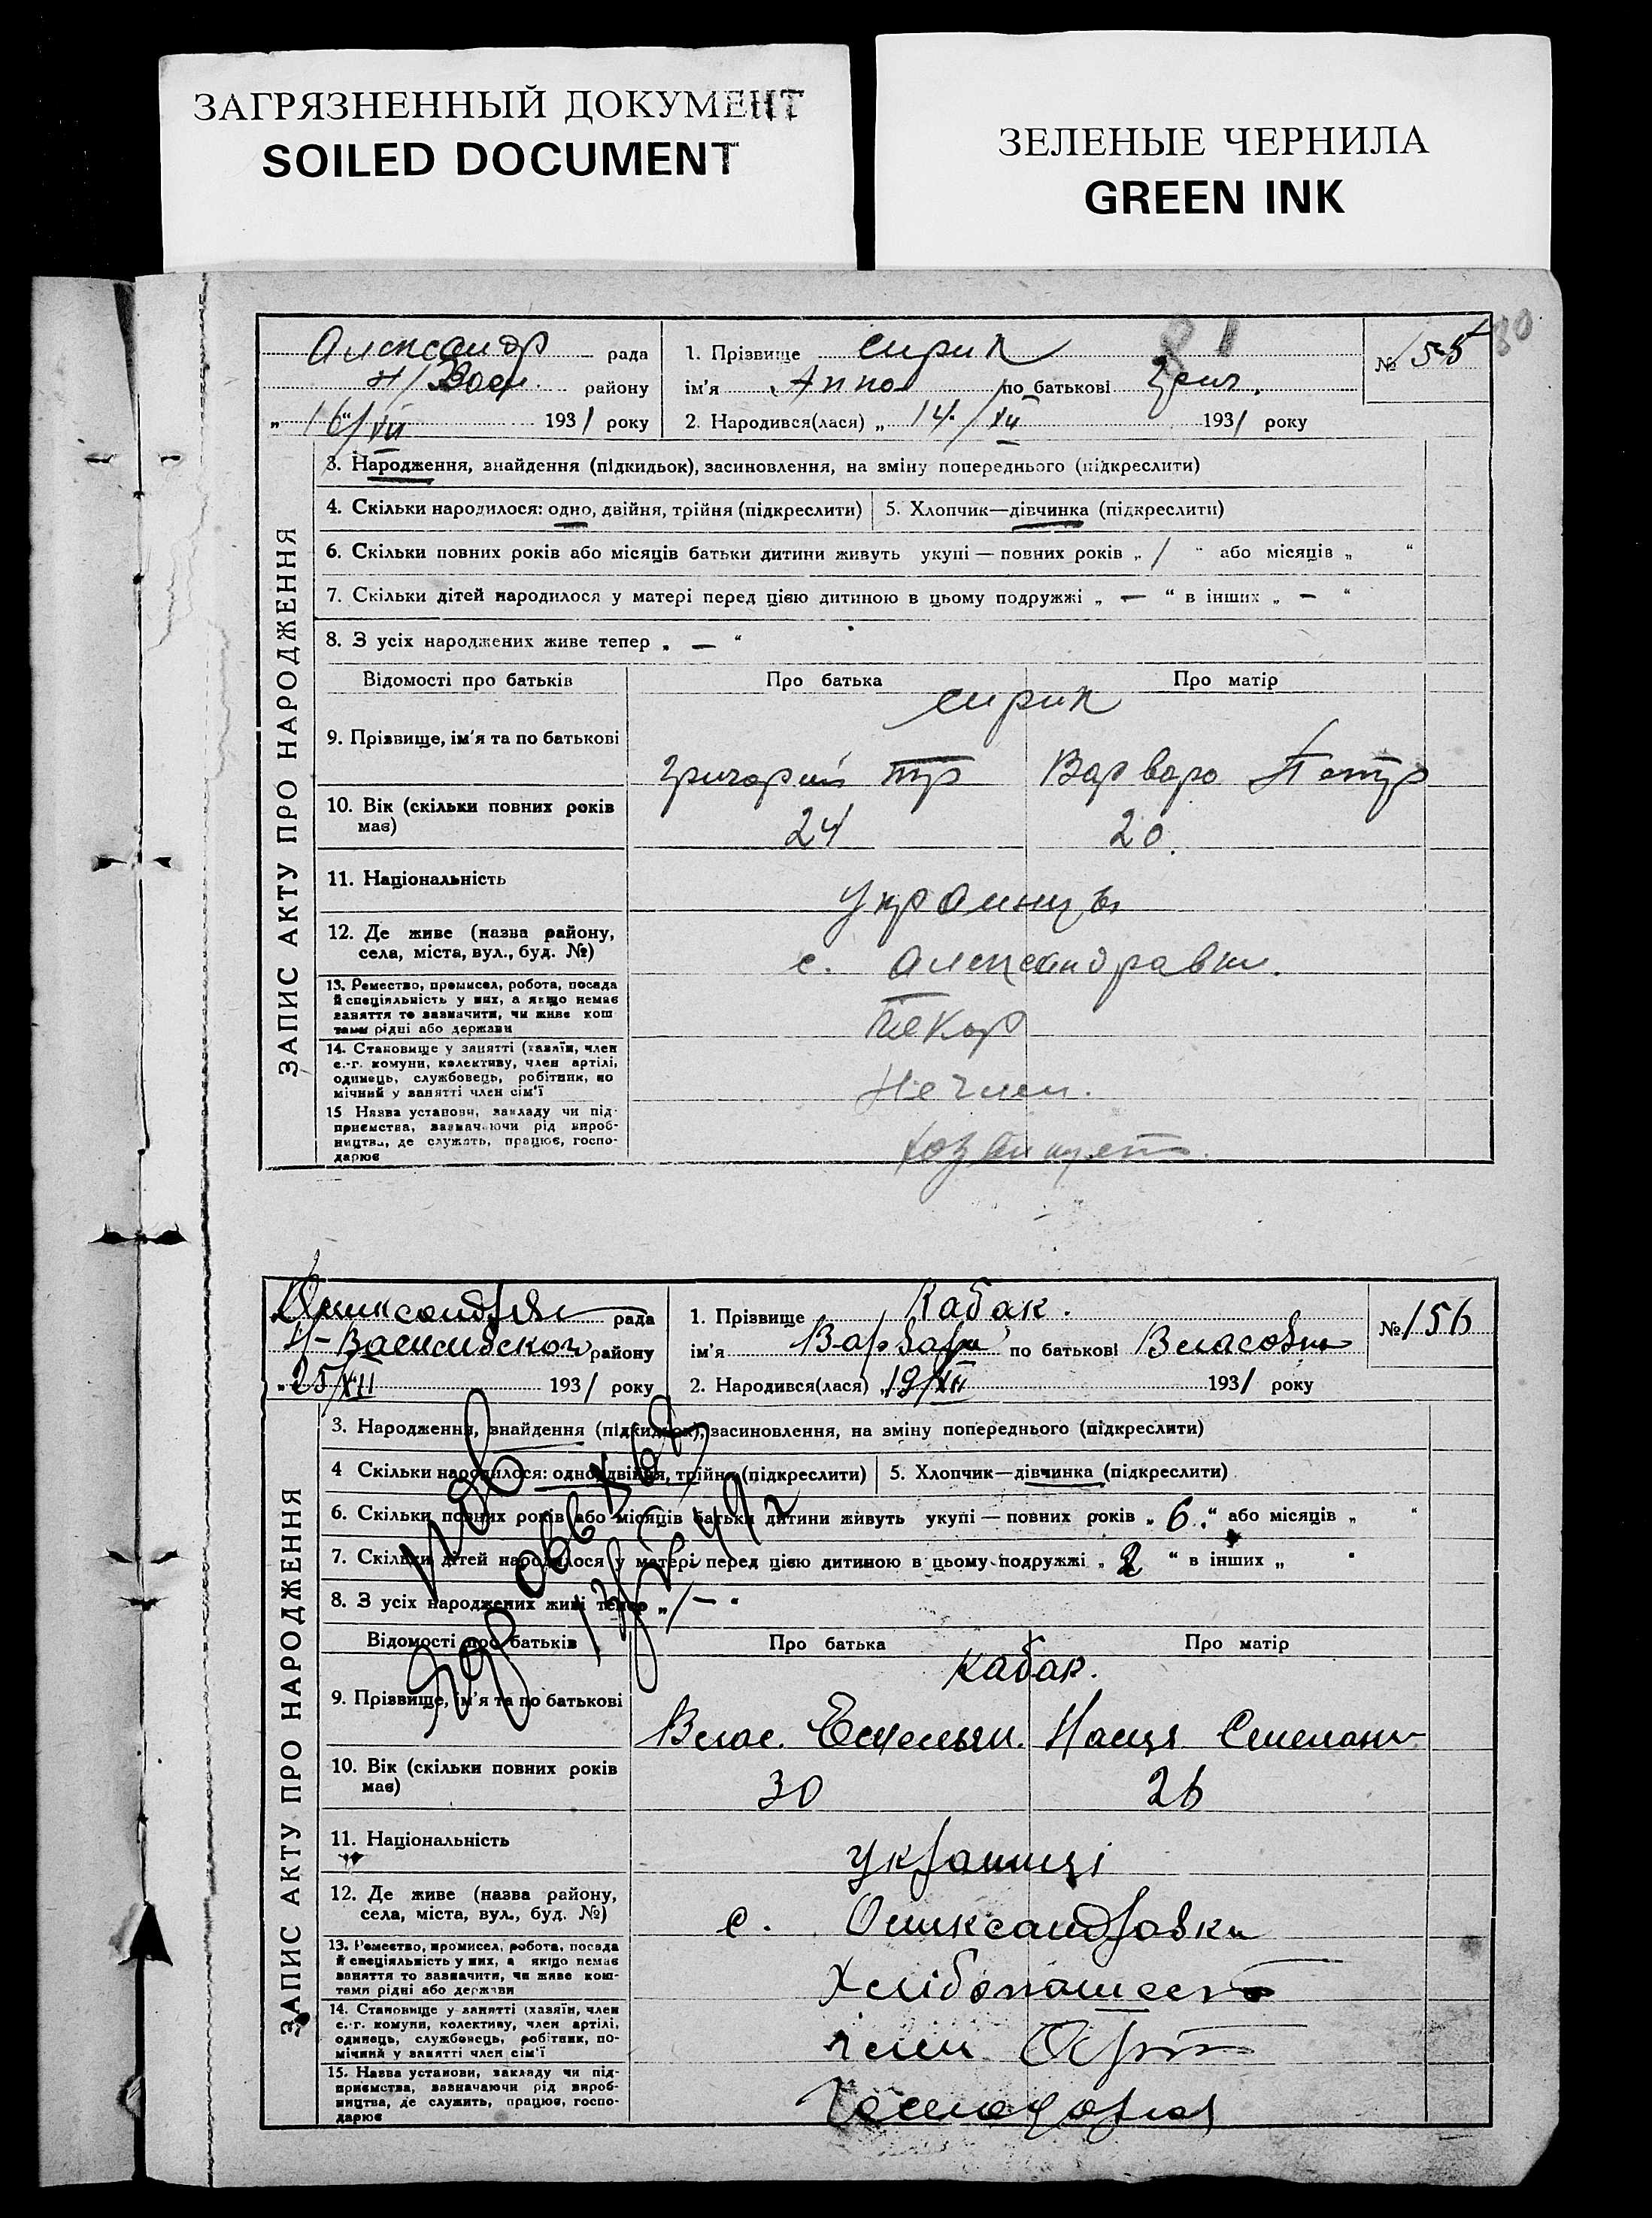 ЗАГРЯЗНЕННЫЙ ДОКУМЕНТ
SOILED DOCUMENT
ЗЕЛЕНЫЕ ЧЕРНИЛА
GREEN INK
81
30
Александр рада
Н/Васи. району
„16“/VII 1931 року
1. Прізвище Сирик
ім'я Анна по батькові Григ.
2. Народився(лася) „14/XII 1931 року
№ 155
ЗАПИС АКТУ ПРО НАРОДЖЕННЯ
3. Народження, знайдення (підкидьок), засиновлення, на зміну попереднього (підкреслити)
4. Скільки народилося: одно, двійня, трійня (підкреслити)
5. Хлопчик—дівчинка (підкреслити)
6. Скільки повних років або місяців батьки дитини живуть укупі — повних років „ / “ або місяців „ “
7. Скільки дітей народилося у матері перед цією дитиною в цьому подружжі „ — “ в інших „ — “
8. З усіх народжених живе тепер „ — “
Відомості про батьків
Про батька
Про матір
Сирик
9. Прізвище, ім'я та по батькові
Григорий
Варвара Петр
10. Вік (скільки повних років має)
24
20.
11. Національність
Украинцы
12. Де живе (назва району, села, міста, вул., буд. №)
с. Александравки.
13. Ремество, промисел, робота, посада й спеціяльність у них, а якщо немає заняття то зазначити, чи живе коштами рідні або держави
Пекар
14. Становище у занятті (хазяїн, член с.-г. комуни, колективу, член артілі, одинець, службовець, робітник, помічний у занятті член сім'ї
Не член.
15 Назва установи, закладу чи підприємства, зазначаючи рід виробництва, де служить, працює, господарює
Александрян рада
Н-Василивского району
„25/XII 1931 року
1. Прізвище Кабак.
ім'я Варвара по батькові Власовна
2. Народився(лася) „19/XII 1931 року
№ 156
ЗАПИС АКТУ ПРО НАРОДЖЕННЯ
3. Народження, знайдення (підкидьок), засиновлення, на зміну попереднього (підкреслити)
4 Скільки народилося: одно, двійня, трійня (підкреслити)
5. Хлопчик—дівчинка (підкреслити)
6. Скільки повних років або місяців батьки дитини живуть укупі — повних років „ 6. “ або місяців „ “
7. Скільки дітей народилося у матері перед цією дитиною в цьому подружжі „ 2 “ в інших „ “
8. З усіх народжених живі тепер „ 1 — “
Відомості про батьків
Про батька
Про матір
Кабак.
9. Прізвище, ім'я та по батькові
Влас. Емельян.
Настя Степан
10. Вік (скільки повних років має)
30
26
11. Національність
Українці
12. Де живе (назва району, села, міста, вул., буд. №)
с. Олександровки
13. Ремество, промисел, робота, посада й спеціяльність у них, а якщо немає заняття то зазначити, чи живе коштами рідні або держави
Хлібопашест
14. Становище у занятті (хазяїн, член с.-г. комуни, колективу, член артілі, одинець, службовець, робітник, помічний у занятті член сім'ї
член Арт
15. Назва установи, закладу чи підприємства, зазначаючи рід виробництва, де служить, працює, господарює